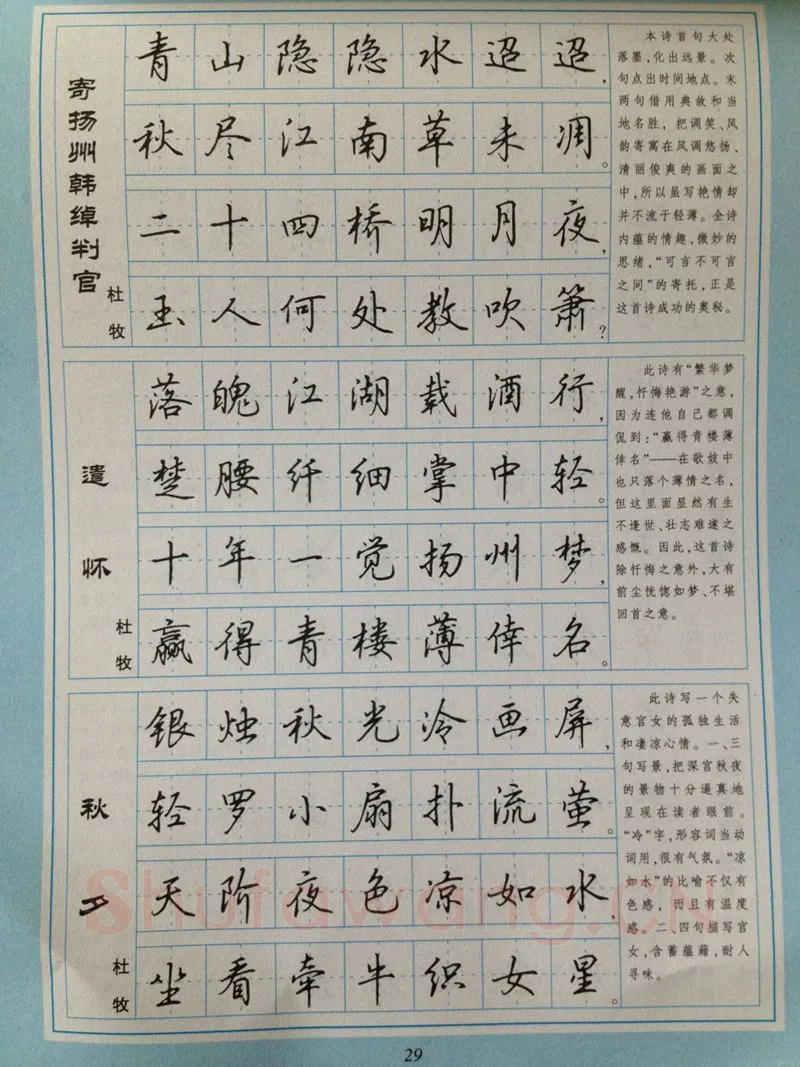 寄扬州韩绰判官
杜牧
青山隐隐水迢迢，
秋尽江南草未凋。
二十四桥明月夜，
玉人何处教吹箫？
本诗首句大处
落墨，化出远景。次
句点出时间地点。末
两句借用典故和当
地名胜，把调笑、风
韵寄寓在风调悠扬、
清丽俊爽的画面之
中，所以虽写艳情却
并不流于轻薄。全诗
内蕴的情趣，微妙的
思绪，“可言不可言
之间”的寄托，正是
这首诗成功的奥秘。
遣怀
杜牧
落魄江湖载酒行，
楚腰纤细掌中轻。
十年一觉扬州梦，
赢得青楼薄倖名。
此诗有“繁华梦
醒，忏悔艳游”之意，
因为连他自己都调
侃到：“赢得青楼薄
倖名”——在歌妓中
也只落个薄情之名，
但这里面显然有生
不逢世、壮志难遂之
感慨。因此，这首诗
除忏悔之意外，大有
前尘恍惚如梦、不堪
回首之意。
秋夕
杜牧
银烛秋光冷画屏，
轻罗小扇扑流萤。
天阶夜色凉如水，
坐看牵牛织女星。
此诗写一个失
意宫女的孤独生活
和凄凉心情。一、三
句写景，把深宫秋夜
的景物十分逼真地
呈现在读者眼前。
“冷”字，形容词当动
词用，很有气氛。“凉
如水”的比喻不仅有
色感，而且有温度
感。二、四句描写宫
女，含蓄蕴藉，耐人
寻味。
Shufawang.cn
29